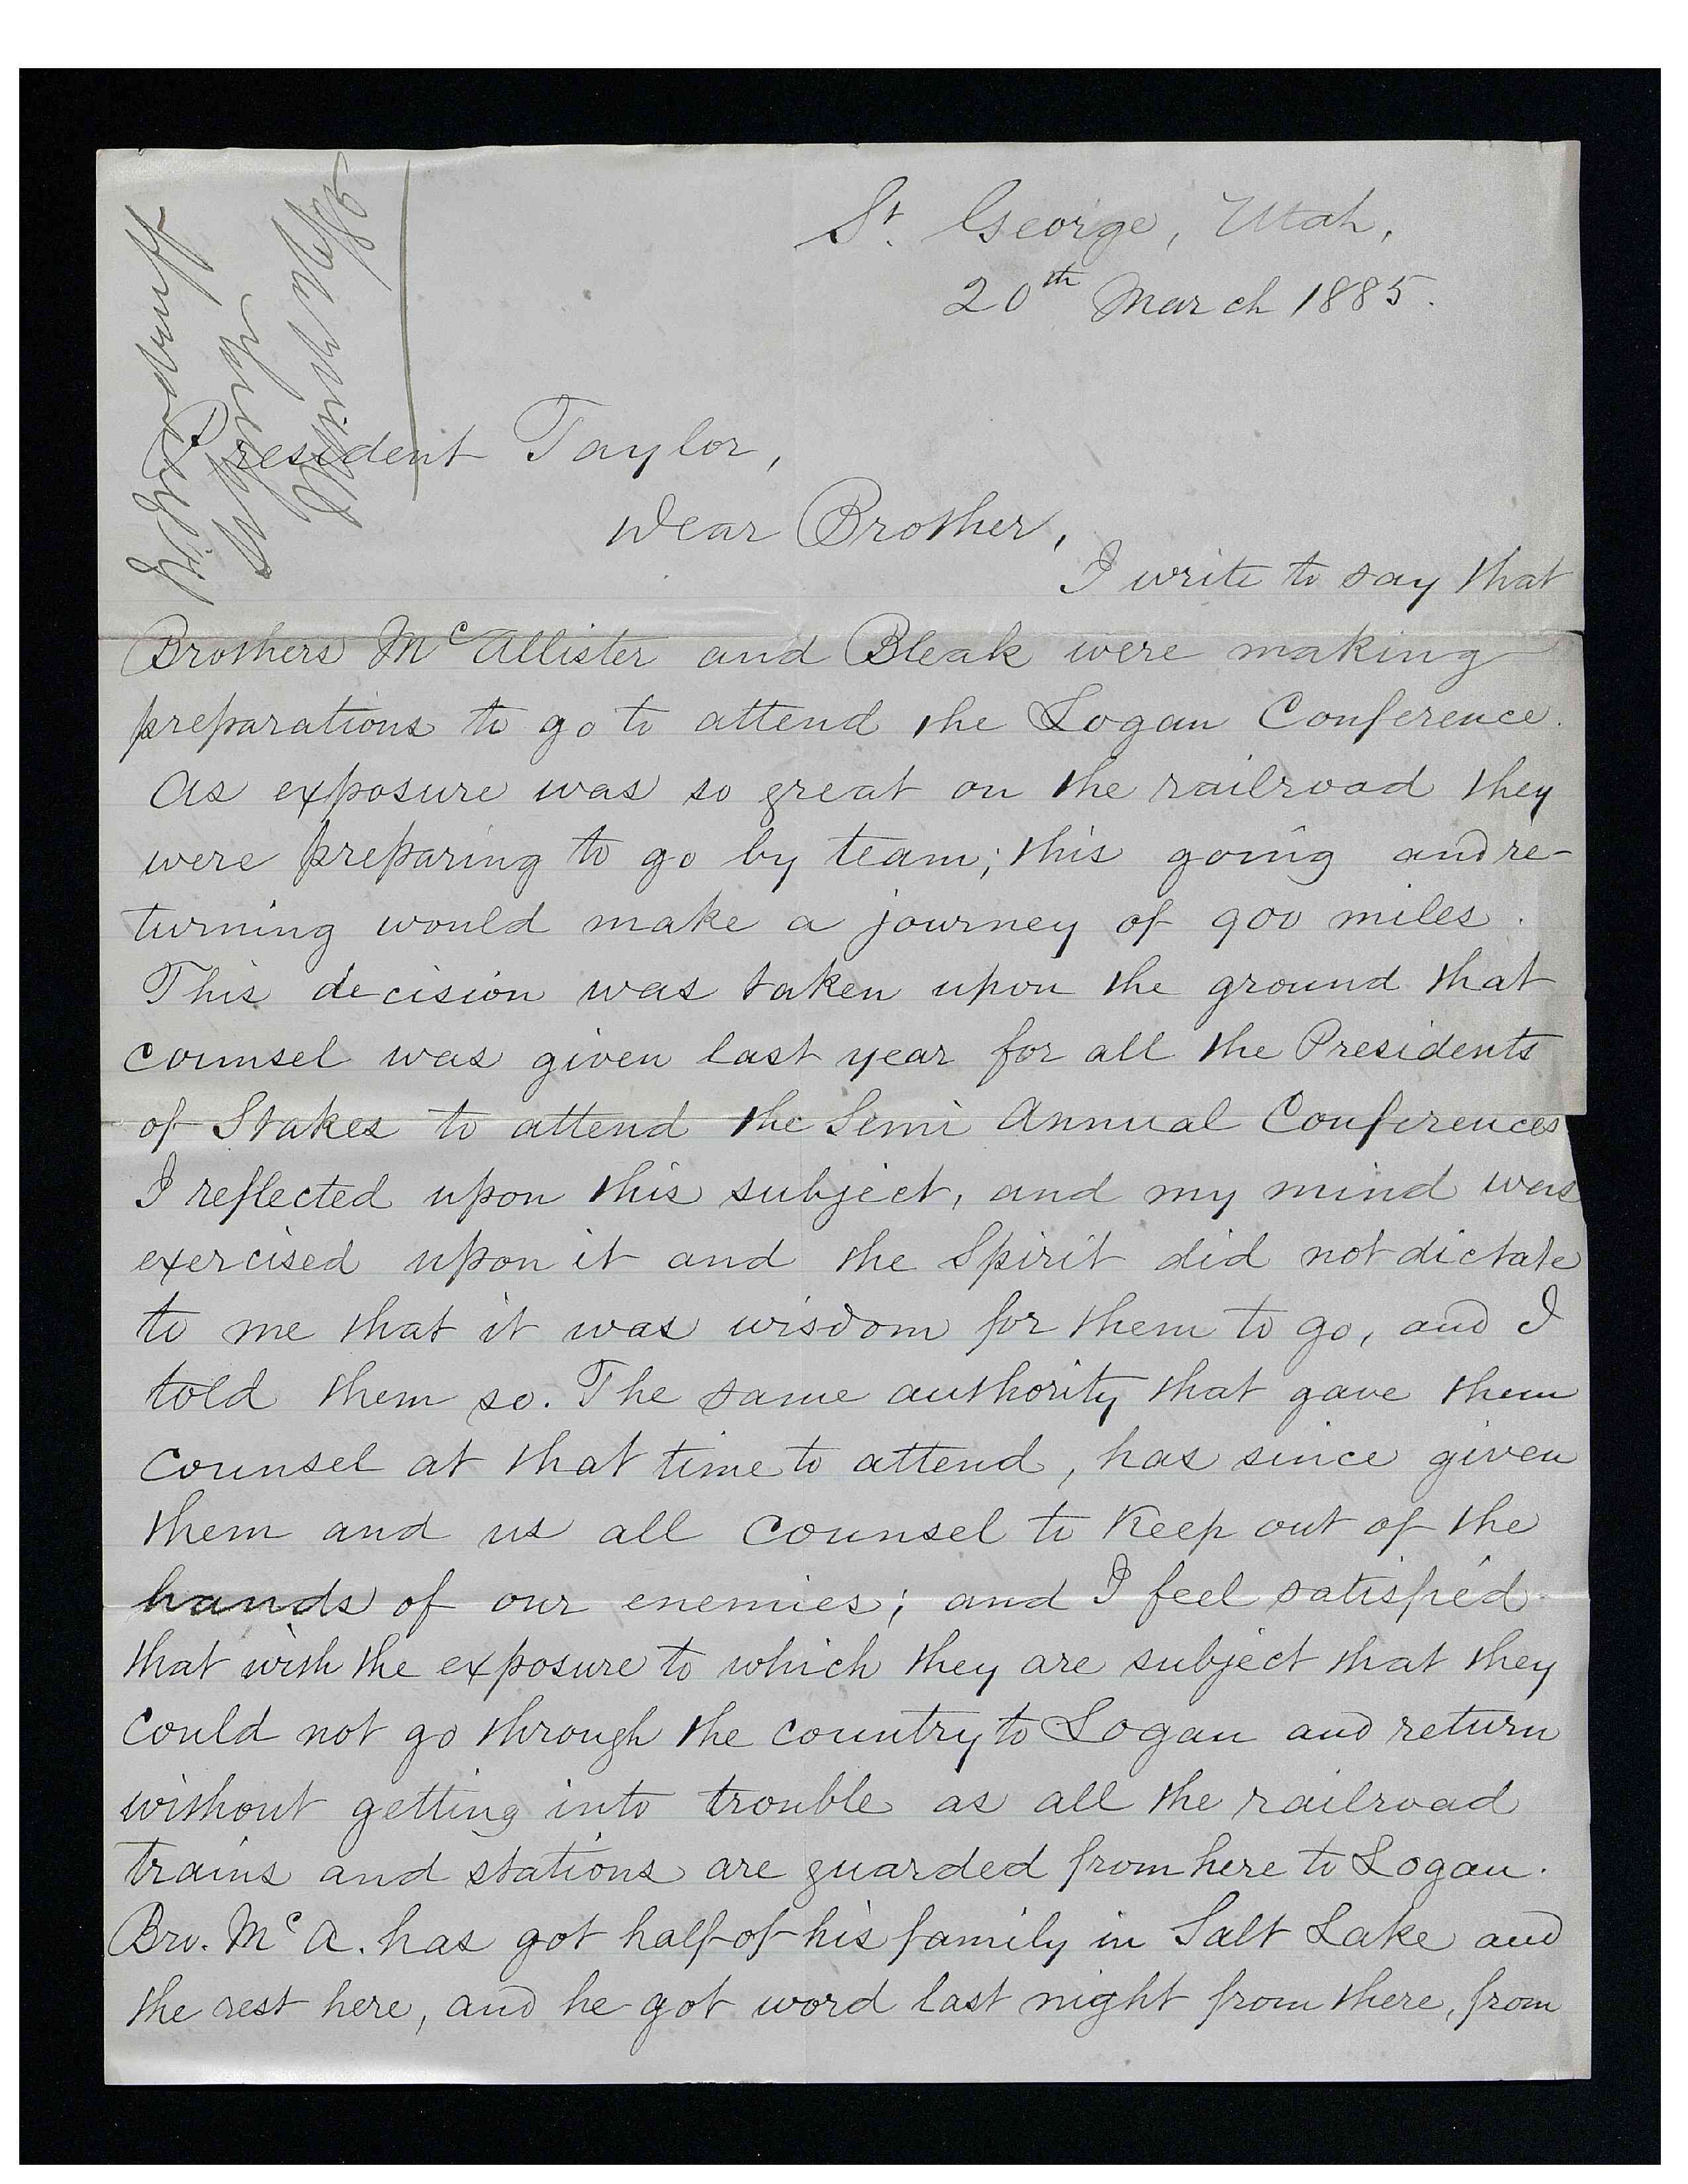 W. Woodruff
St. George, Utah,
20th March 1885.
President Taylor,
Dear Brother,
I write to say that
Brothers McAllister and Bleak were making
preparations to go to attend the Logan Conference.
As exposure was so great on the railroad they
were preparing to go by team; this going and re-
turning would make a journey of 900 miles.
This decision was taken upon the ground that
counsel was given last year for all the Presidents
of Stakes to attend the Semi Annual Conferences
I reflected upon this subject, and my mind was
exercised upon it and the Spirit did not dictate
to me that it was wisdom for them to go, and I
told them so. The same authority that gave them
counsel at that time to attend, has since given
them and us all counsel to Keep out of the
hands of our enemies; and I feel satisfied
that with the exposure to which they are subject that they
could not go through the country to Logan and return
without getting into trouble as all the railroad
trains and stations are guarded from here to Logan.
Bro. McA. has got half of his family in Salt Lake and
the rest here, and he got word last night from there, from